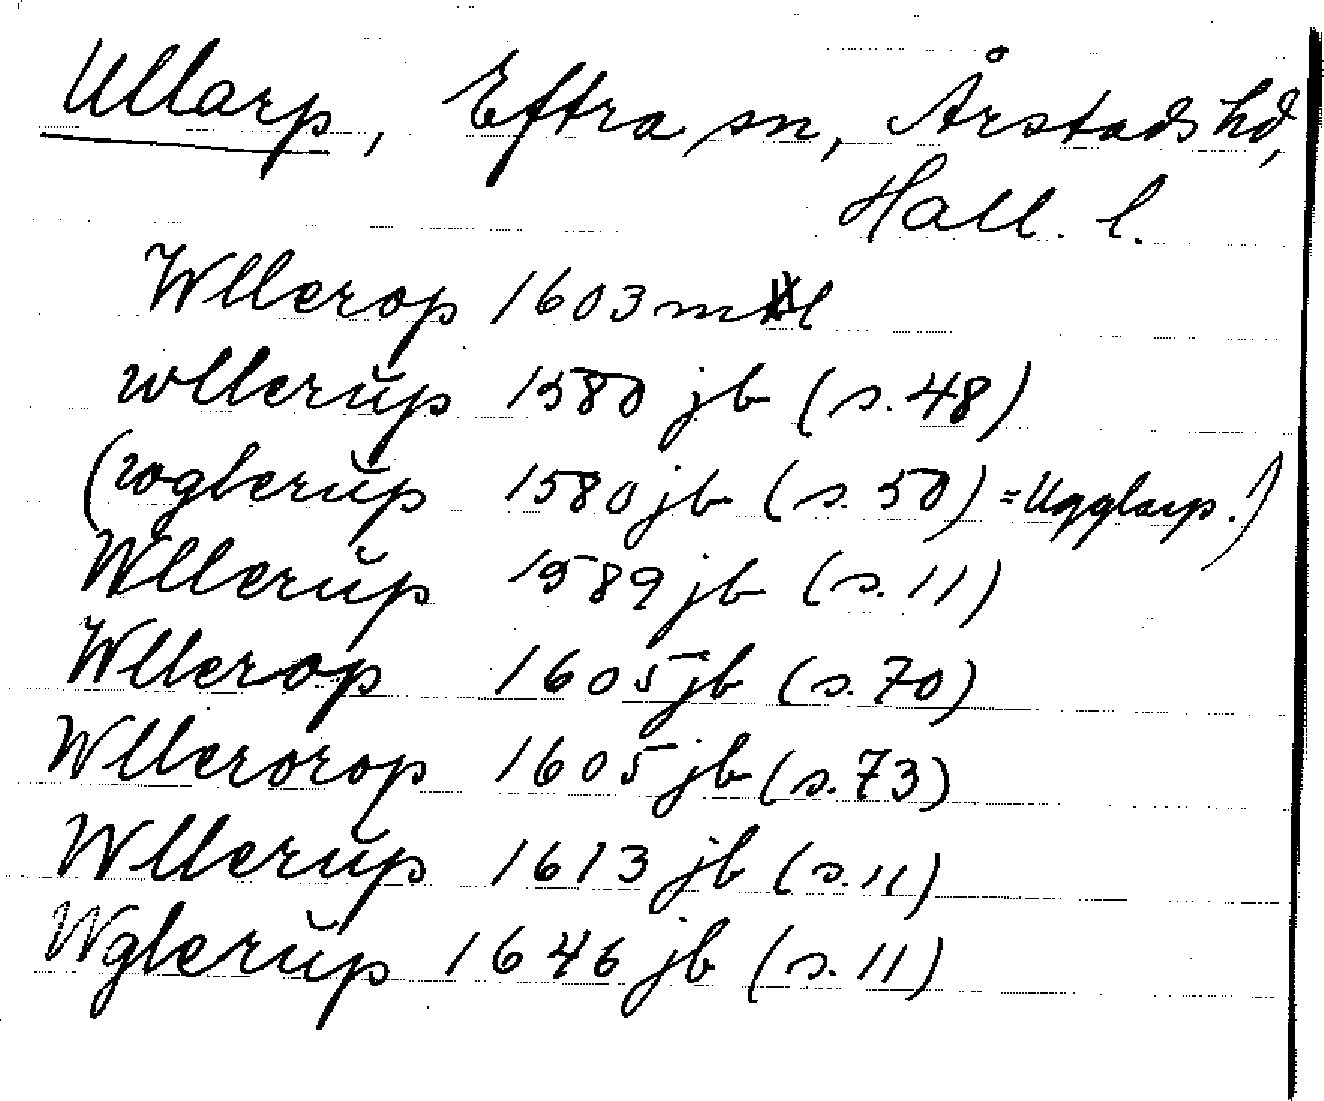 Ullarp, Eftra sn, Årstads hd,
Hall. l.
Wllerop 1603 mtl
wllerŭp 1580 jb (s. 48)
(woglerŭp 1580 jb (s. 50) = Ugglarp.!)
Wllerŭp 1589 jb (s. 11)
Wllerop 1605 jb (s. 70)
Wllerorop 1605 jb (s. 73)
Wllerŭp 1613 jb (s. 11)
Wglerŭp 1646 jb (s. 11)